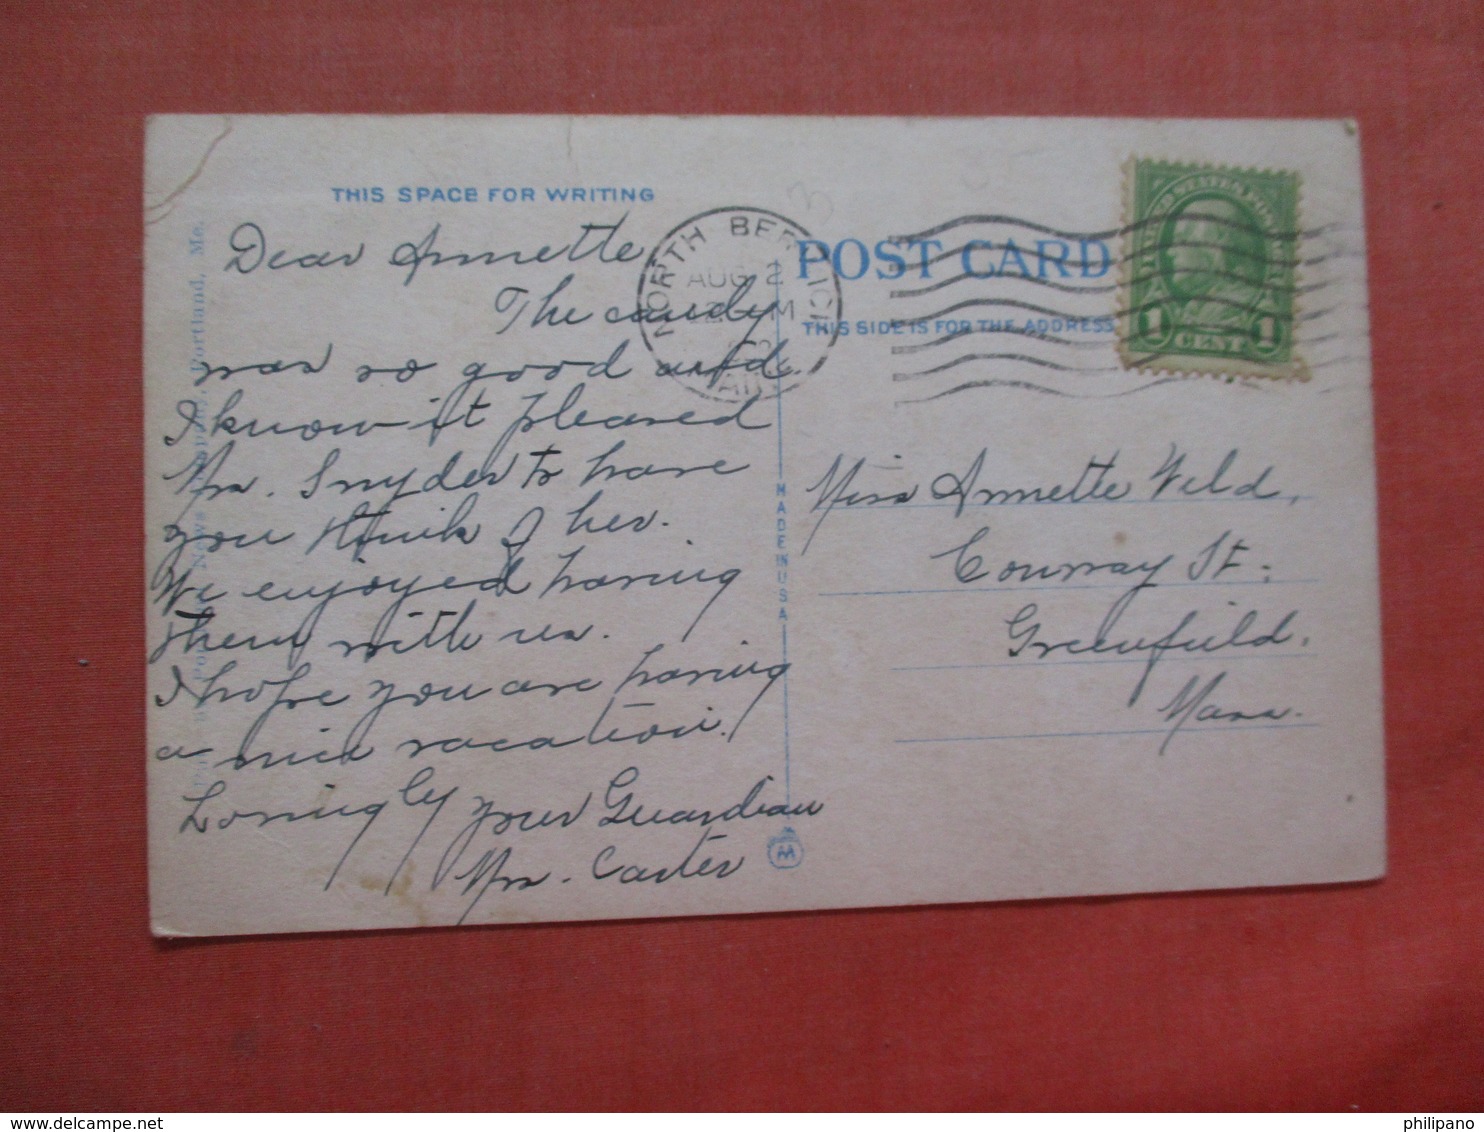 THIS SPACE FOR WRITING
Dear Annette
The candy
was so good and
I know it pleased
Mrs. Snyder to have
you think of her.
We enjoyed having
them with us.
I hope you are having
a nice vacation.
Lovingly your Guardian
Mrs. Carter
Portland, Me.
NORTH BERWICK
AUG 2
M
MAINE
MADE IN U.S.A.
POST CARD
THIS SIDE IS FOR THE ADDRESS
1 CENT 1
Miss Annette Weld,
Conway St.
Greenfield,
Mass.
philipano